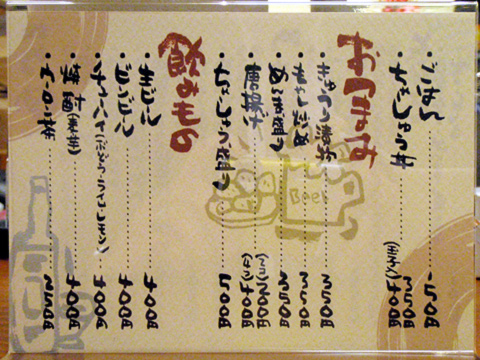 ・ごはん 150円
・ちゃーしゅう丼 350円
400円
おつまみ
・きゅうり漬物 350円
350円
・めんま盛り 350円
・唐揚げ (3コ)300円
(4コ)400円
・ちゃーしゅう盛り 500円
飲みもの
・生ビール 400円
・ビンビール 400円
・チューハイ(ぶどう・ライム・レモン) 400円
・焼酎(麦・芋) 400円
・ウーロン茶
Beer